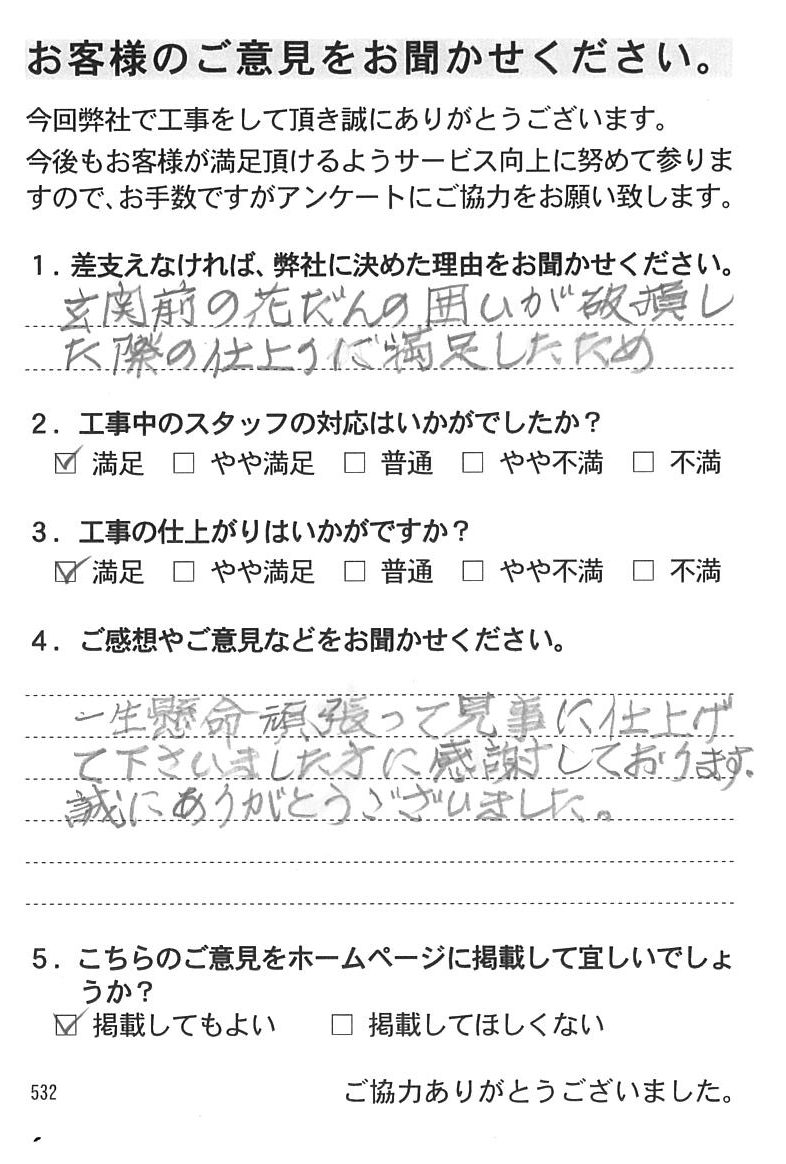 お客様のご意見をお聞かせください。
今回弊社で工事をして頂き誠にありがとうございます。
今後もお客様が満足頂けるようサービス向上に努めて参りま
すので、お手数ですがアンケートにご協力をお願い致します。
1. 差支えなければ、弊社に決めた理由をお聞かせください。
玄関前の花だんの囲いが破損し
た際の仕上りに満足したため
2. 工事中のスタッフの対応はいかがでしたか？
☑ 満足 □ やや満足 □ 普通 □ やや不満 □ 不満
3. 工事の仕上がりはいかがですか？
☑ 満足 □ やや満足 □ 普通 □ やや不満 □ 不満
4. ご感想やご意見などをお聞かせください。
一生懸命頑張って見事に仕上げ
て下さいました方に感謝しております。
誠にありがとうございました。
5. こちらのご意見をホームページに掲載して宜しいでしょ
うか？
☑ 掲載してもよい □ 掲載してほしくない
532 ご協力ありがとうございました。